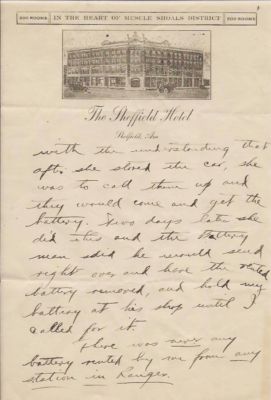 200 ROOMS
IN THE HEART OF MUSCLE SHOALS DISTRICT
200 ROOMS
The Sheffield Hotel
Sheffield, Ala
with the understanding that
after she stored the car, she
was to call them up and
they would come and get the
battery. Two days later she
did this and the battery
man said he would send
right over and have the rented
battery removed, and hold my
battery at his shop until I
called for it.
There was never any
battery rented by me from any
station in Ranger.